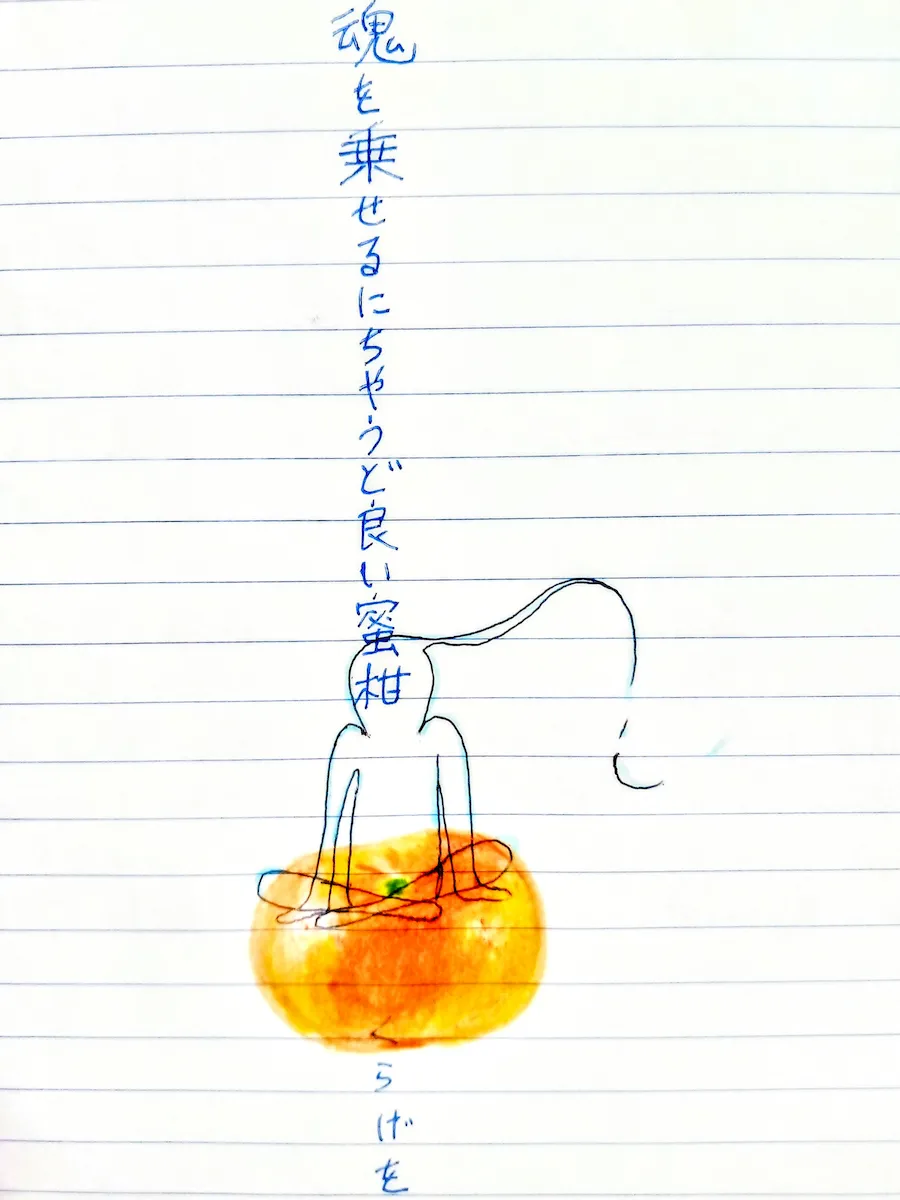 魂を乗せるにちやうど良い蜜柑
くらげを